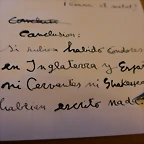 Conclusion:
Si hubiera habido condones
en Inglaterra y Espa
ni Cervantes ni Shakespe
habrían escrito nada